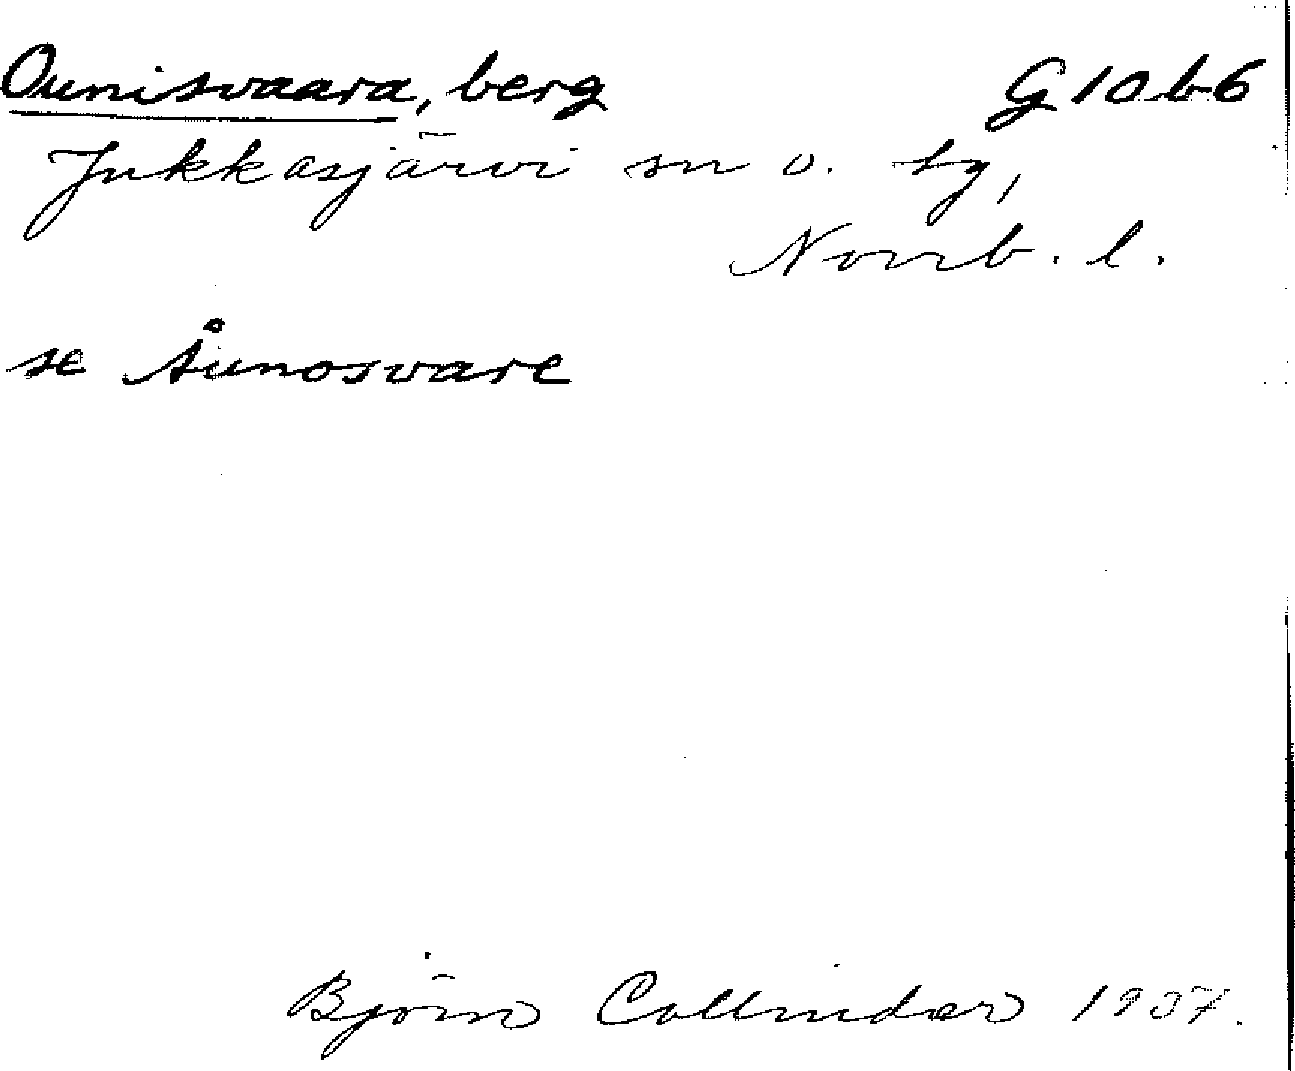 Ounisvaara, berg G 10 b 6
Jukkasjärvi sn o. tg,
Norrb. l.
se Åunosvare
Björn Collinder 1937.